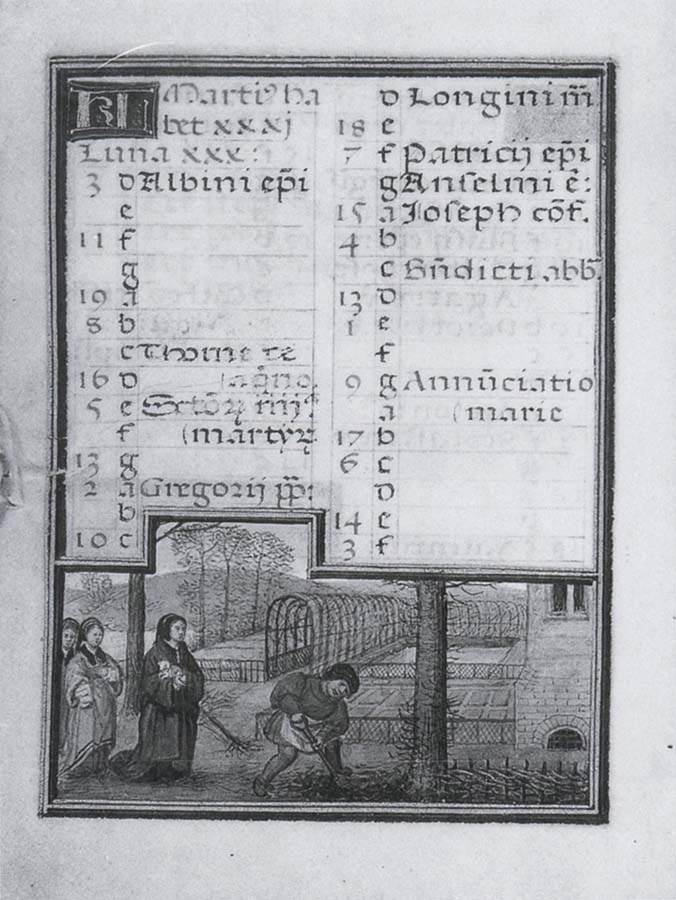 KL Martiꝰ ha
bet xxxj
Luna xxx:
3 d Albini ep̃i
e
11 f
g
19 a
8 b
c Thome de
16 d (aq̃no.
5 e
f (martyꝝ
13 g
2 a Gregorij p̃p:
b
10 c
d Longini m̃
18 e
7 f Patricij ep̃i
g Anselmi ẽ:
15 a Joseph cõf.
4 b
c Bñdicti abb̃.
13 d
1 e
f
9 g Annũciatio
a (marie
17 b
6 c
d
14 e
3 f